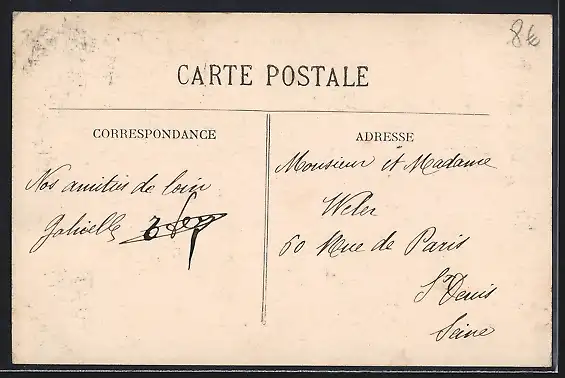 86
CARTE POSTALE
CORRESPONDANCE
Nos amitiés de loin
ADRESSE
Monsieur et Madame
Weler
60 Rue de Paris
St Denis
Seine